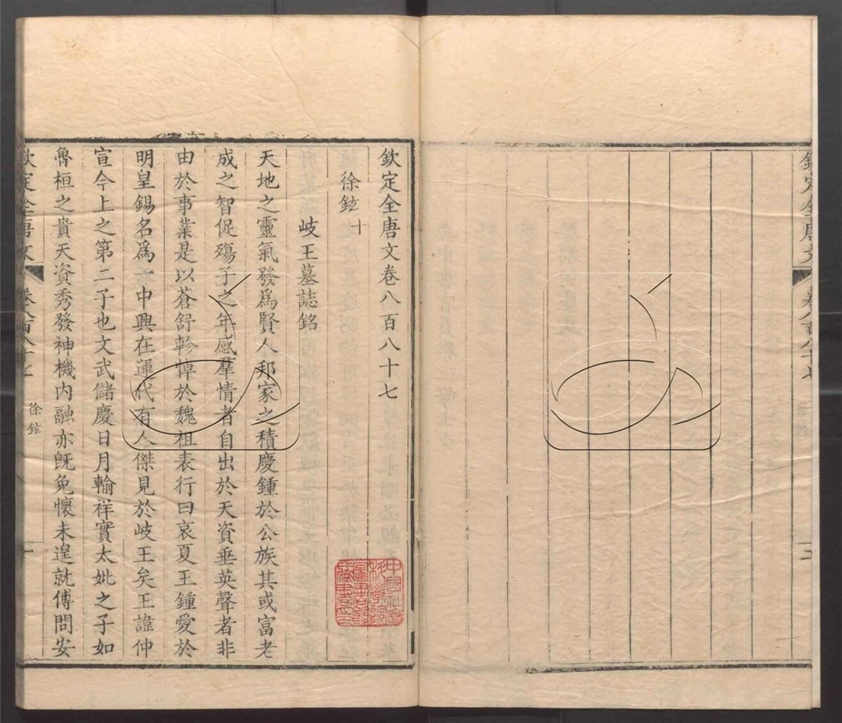 欽定全唐文卷八百八十七
徐鉉十
岐王墓誌銘
天地之靈氣發爲賢人邦家之積慶鍾於公族其或富老
成之智促殤子之年感羣情者自出於天資垂英聲者非
由於事業是以蒼舒軫悼於魏祖表行曰哀夏王鍾愛於
明皇錫名爲一中興在運代有人傑見於岐王矣王諱仲
宣今上之第二子也文武儲慶日月輸祥實太姒之子如
魯桓之貴天資秀發神機內融亦旣免懷未遑就傅問安
欽定全唐文
卷八百八十七
徐鉉
一